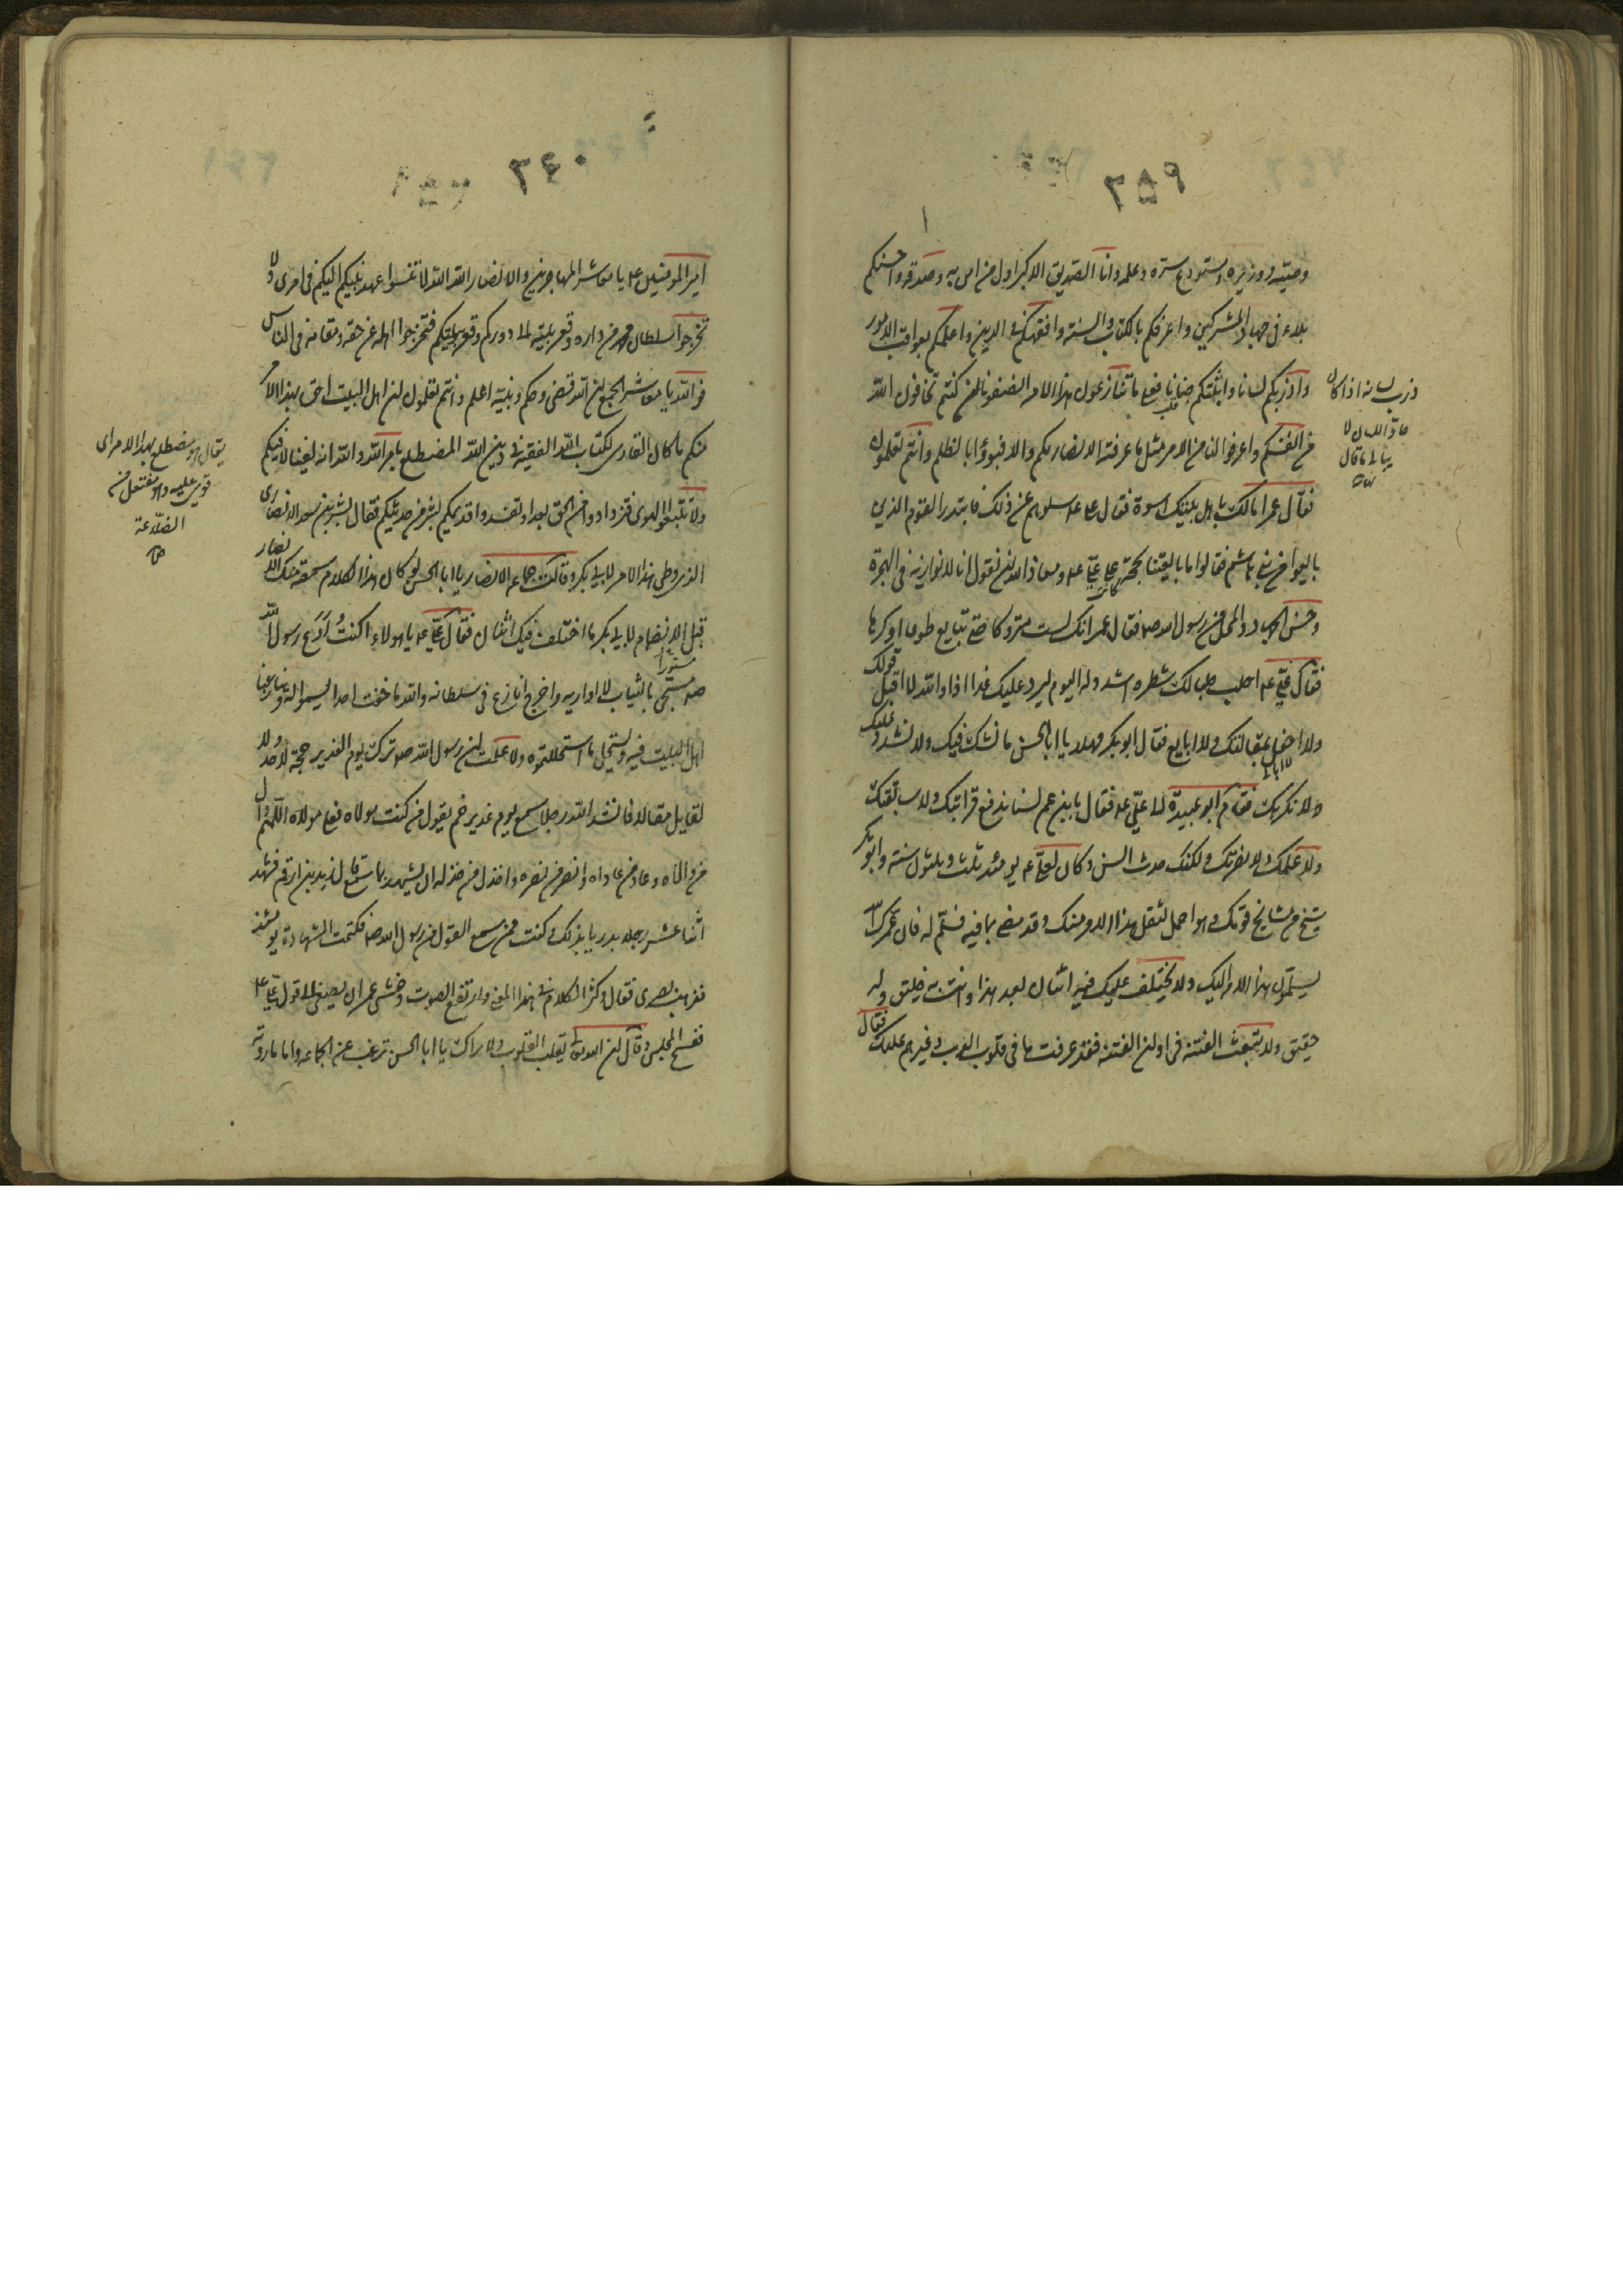 ٣٥٩
وصيه ووزيره ومستودع سره وعلمه وانا الصديق الاكبر اول من امن به وصدقه واحسنكم
بلاء فى جهاد المشركين واعرفكم بالكتاب والسنة وافقهكم فى الدين واعلمكم بعواقب الامور
واذربكم لسانا واثبتكم جنانا فعلام تنازعون هذا الامر انصفونا ان كنتم تخافون الله
من انفسكم واعرفوا لنا من الامر مثل ما عرفته الانصار لكم والا فبوؤا بالظلم وانتم تعلمون
فقال عمر اما لك باهل بيتك اسوة فقال على ع سلوهم عن ذلك فابتدر القوم الذين
بايعوا من بنى هاشم فقالوا ما بايعتنا بحجة على على ع ومعاذ الله ان نقول انا نوازيه فى الهجرة
وحسن الجهاد والمحل من رسول الله ص فقال عمر انك لست متروكا حتى تبايع طوعا او كرها
فقال على ع احلب حلبا لك شطره اشدد له اليوم ليرد عليك غدا اذا والله لا اقبل قولك
ولا احفل بمقالتك ولا ابايع فقال ابو بكر مهلا يا ابا الحسن ما نشك فيك ولا نشدد عليك
ولا نكرهك فقام ابو عبيدة الى على ع فقال يا بن عم لسنا ندفع قرابتك ولا سابقتك
ولا علمك ولا نصرتك ولكنك حدث السن وكان لعلى ع يومئذ ثلث وثلثون سنة وابو بكر
شيخ من مشايخ قومك وهو احمل لثقل هذا الامر منك وقد مضى بما فيه فسلم له فان عمرك الله
يسلمون هذا الامر اليك ولا يختلف عليك فيه اثنان بعد هذا وانت به خليق وله
حقيق ولا تبعث الفتنة فى اوان الفتنة فقد عرفت ما فى قلوب العرب وغيرهم عليك فقال
ذرب لسانه اذا كان
حاد اللسان لا
يبالى ما قال
٣٦٠
امير المومنين ع يا معاشر المهاجرين والانصار الله الله لا تنسوا عهد نبيكم اليكم فى امرى ولا
تخرجوا سلطان محمد من داره وقعر بيته الى دوركم وقعر بيوتكم فتخرجوا اهله عن حقه ومقامه فى الناس
فوالله يا معاشر الجمع ان الله قضى وحكم ونبيه اعلم وانتم تعلمون ان اهل البيت احق بهذا الامر
منكم ما كان القارى لكتاب الله الفقيه فى دين الله المضطلع بامر الله والله انه لفينا لا فيكم
ولا تتبعوا الهوى فتزدادوا من الحق بعدا وتفسدوا قديمكم بشر من حديثكم فقال بشير بن سعد الانصارى
الذى وطى هذا الامر لابى بكر وقالت جماعة الانصار يا ابا الحسن لو كان هذا الكلام سمعته منك الانصار
قبل الانضمام لابى بكر ما اختلف فيك اثنان فقال على ع يا هولاء اكنت ادع رسول الله
ص مسجى بالثياب لا اواريه واخرج انازع فى سلطانه والله ما خفت احدا يسموا له وينازعنا
اهل البيت فيه ويستحل ما استحللتموه ولا علمت ان رسول الله ص ترك يوم الغدير حجة لاحد ولا
لقايل مقالا فانشد الله رجلا سمع يوم غدير خم يقول من كنت مولاه فعلى مولاه اللهم وال
من والاه وعاد من عاداه وانصر من نصره واخذل من خذله ان يشهد بما سمع قال زيد بن ارقم فشهد
اثنا عشر رجلا بدريا بذلك وكنت ممن سمع القول من رسول الله ص فكتمت الشهادة يومئذ
فذهب بصرى فقال وكثر الكلام فى هذا المعنى وارتفع الصوت وخشى عمر ان يصغى الى قول على ع
ففسح المجلس وقال ان الله تعالى يقلب القلوب ولا يزال يا ابا الحسن ترغب عن الجماعة
يقال هو مضطلع بهذا الامر اى
قوى عليه وهو مفتعل من
الضلاعة